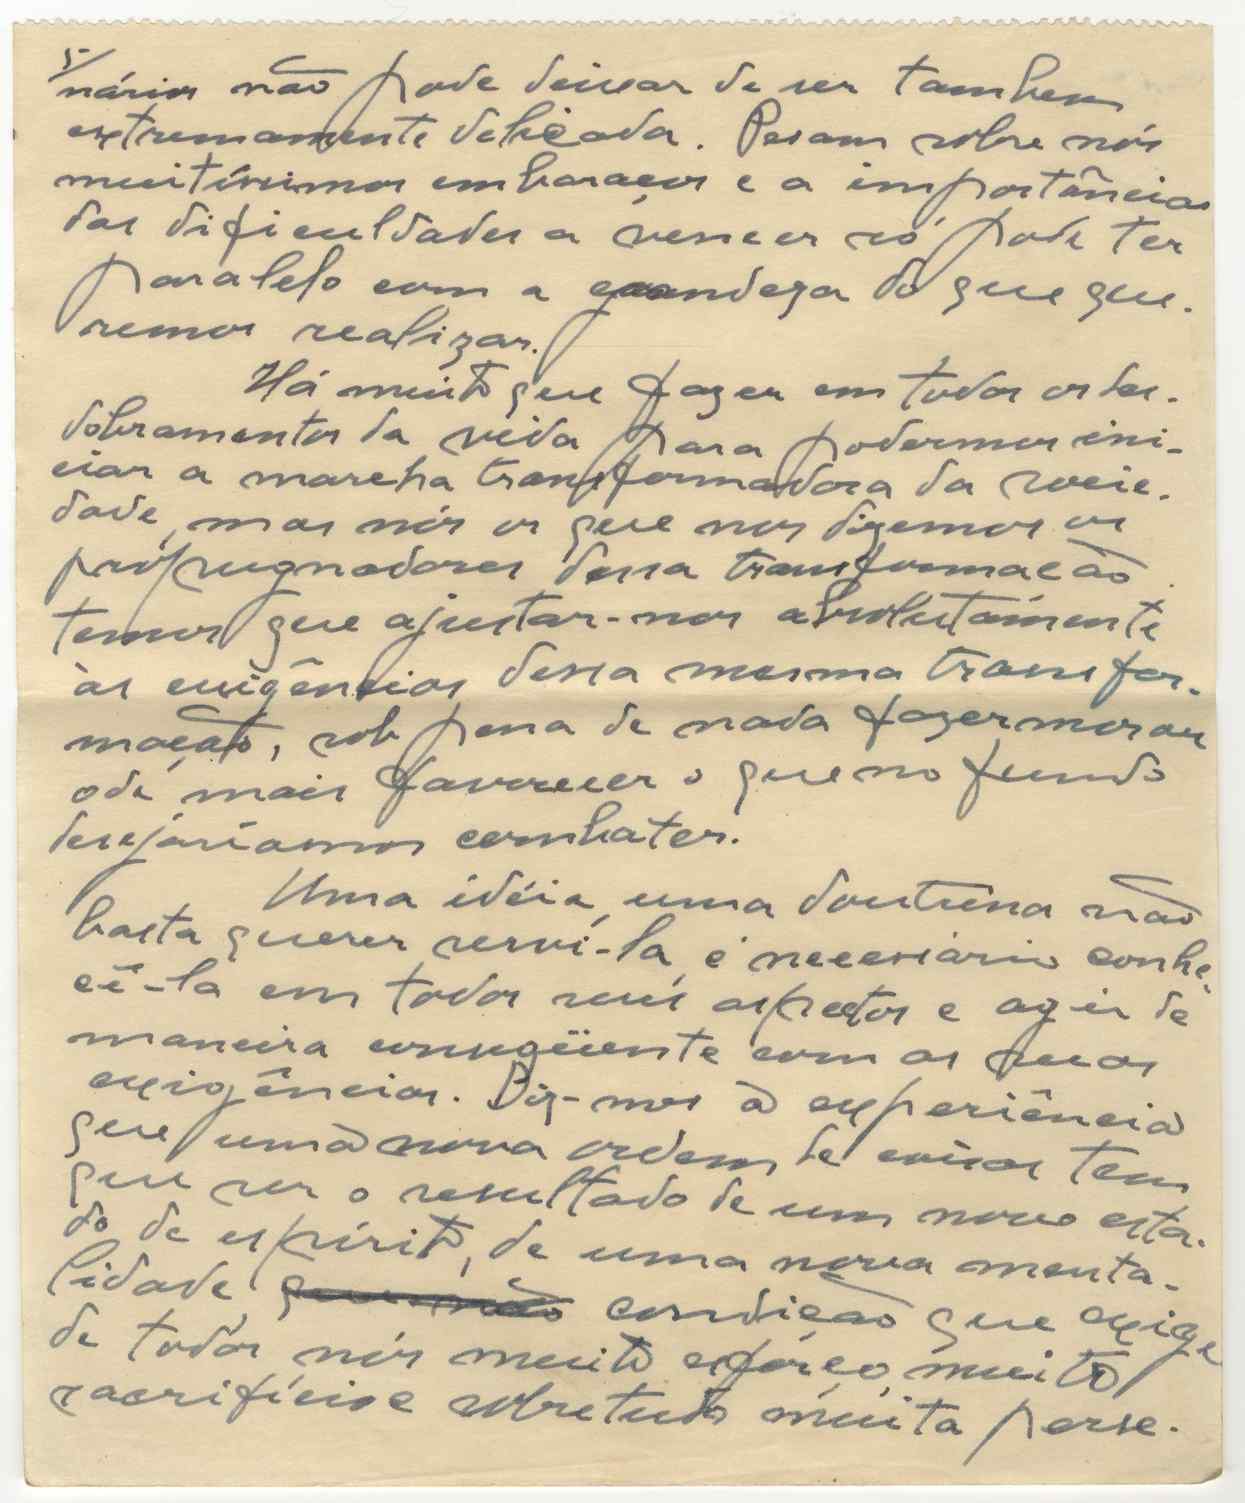 5/
nários não pode deixar de ser tambem
extremamente delicada. Pesam sobre nós
muitíssimos embaraços e a importância
das dificuldades a vencer só pode ter
paralelo com a grandeza do que que-
remos realizar.
Há muito que fazer em todos os des-
dobramentos da vida para podermos ini-
ciar a marcha transformadora da socie-
dade, mas nós os que nos dizemos os
própugnadores dessa transformação
temos que ajustar-nos absolutamente
às exigências dessa mesma transfor-
mação, sob pena de nada fazermos ou
até mais favorecer o que no fundo
desejaríamos combater.
Uma idéia, uma doutrina não
basta querer serví-la, é necessário conhe-
cê-la em todos seus aspectos e agir de
maneira conseqüente com as suas
exigências. Diz-nos a experiência
que uma nova ordem de coisas tem
que ser o resultado de um novo esta-
do de espírito, de uma nova menta-
lidade, que não condição que exige
de todos nós muito esfôrço, muito
sacrifício e sobretudo muita perse-